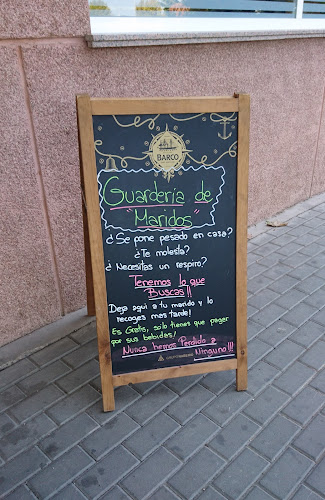 BARCO
Guardería de
"Maridos"
¿Se pone pesado en casa?
¿Te molesta?
¿Necesitas un respiro?
Tenemos lo que
Buscas!!
Deja aqui a tu marido y lo
recoges mas tarde!
Es Gratis, solo tienes que pagar
por sus bebidas!
Nunca hemos Perdido a
Ninguno!!!